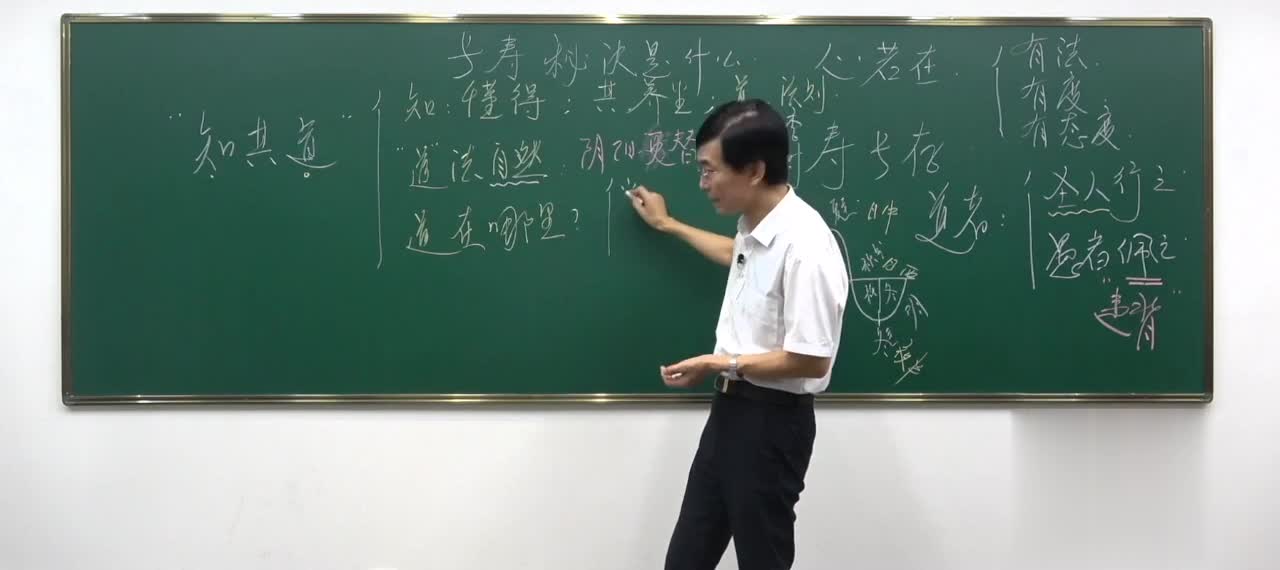 长寿秘诀是什么 人若在
有法
有度
有态度
"知其道"
知：懂得；其：养生；道：法则
"道"法自然：阴阳更替
寿长存
道在哪里？
道者：
圣人行之
愚者佩之
"违背"